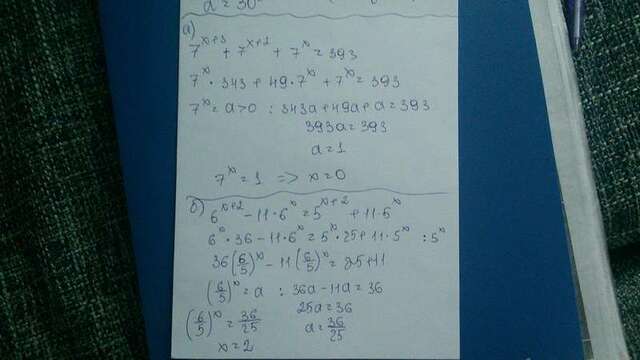 a = 30
а)
7^(x+3) + 7^(x+2) + 7^x = 393
7^x · 343 + 49 · 7^x + 7^x = 393
7^x = a > 0 : 343a + 49a + a = 393
393a = 393
a = 1
7^x = 1 => x = 0
б)
6^(x+2) - 11 · 6^x = 5^(x+2) + 11 · 5^x
6^x · 36 - 11 · 6^x = 5^x · 25 + 11 · 5^x : 5^x
36(6/5)^x - 11(6/5)^x = 25 + 11
(6/5)^x = a : 36a - 11a = 36
25a = 36
(6/5)^x = 36/25 a = 36/25
x = 2